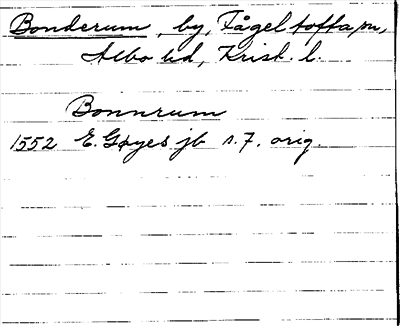 Bonderum, by, Fågeltofta sn,
Albo hd, Krist. l.
Bonnrum
1552 E. Gøyes jb s. 7. orig.